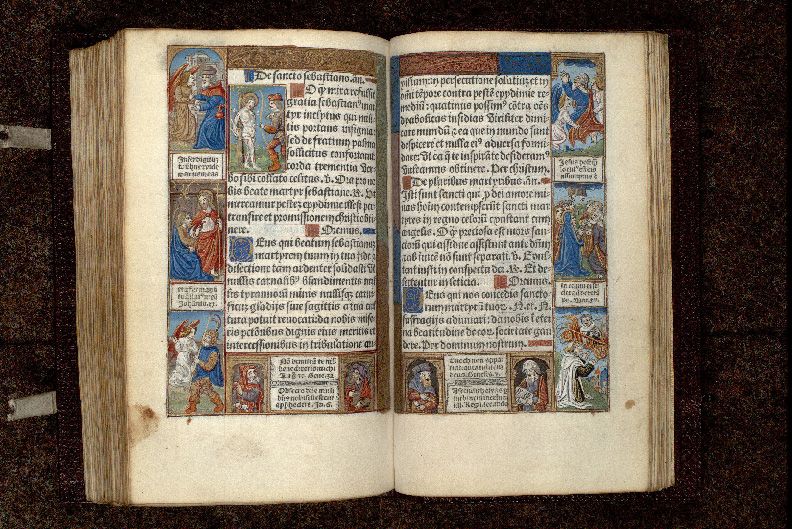 De sancto sebastiano. añ.
O q̃ mira refulsit
gratia sebastian⁹ mar
tyr inclytus qui mili
tis portans insignia:
sed de fratrum palma
sollicitus confortauit
corda trementia ver
bo sibi collato celitus. v̄. Ora pro no
bis beate martyr sebastiane. R̄. Vt
mereamur pestẽ epydimie illesi per
transire et promissionem christi obti
nere. Oremus.
Deus qui beatum sebastianũ
martyrem tuum in tua fide
dilectione tam ardenter solidasti vt
nullis carnalib⁹ blandimentis nul
lis tyrannorũ minis nullisq̃ carni
ficũ gladiis siue sagittis a tua cul
tura potuit reuocari: da nobis mise
ris pctõribus dignis eius meritis et
intercessionibus in tribulatione au
xilium: in persecutione solatiũ: et in
om̃i tẽpore contra pestẽ epydimie re
mediũ: quatinus possim⁹ cõtra oẽs
dyabolicas insidias viriliter dimi
care mundũ et ea que in mundo sunt
despicere et nulla ei⁹ aduersa formi
dare: vt ea q̃ te inspirãte desideram⁹
valeamus obtinere. Per christum.
De pluribus martyribus. añ.
Isti sunt sancti qui p dei amore mi
nas hoĩm contempserũt sancti mar
tyres in regno celorũ exultant cum
angelis. O q̃ preciosa est mors san
ctorũ qui assidue assistunt anti dñm
et ab inuicẽ nõ sunt separati. v̄. Exul
tent iusti in conspectu dei. R̄. Et de
lectentur in leticia. Oremus.
Deus qui nos concedis sancto
rum martyrũ tuoꝝ. N. et. N.
suffragijs adiuuari: da nobis ĩ eter
na beatitudine de eoꝝ societate gau
dere. Per dominum nostrum.
Infer digitũ
Jesus postq̃
Johãnis. xx.
Nõ
Gene.
Obsecro
Jo.
Enoch non appa
Genesis. v.
iiii. Regũ. secundo